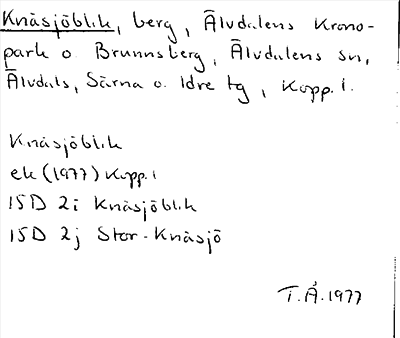 Knäsjöblik, berg, Älvdalens Krono-
park o. Brunnsberg, Älvdalens sn,
Älvdals, Särna o. Idre tg, Kopp. l.
Knäsjöblik
ek (1977) Kopp. l
15D 2i Knäsjöblik
15D 2j Stor-Knäsjö
T.Å. 1977